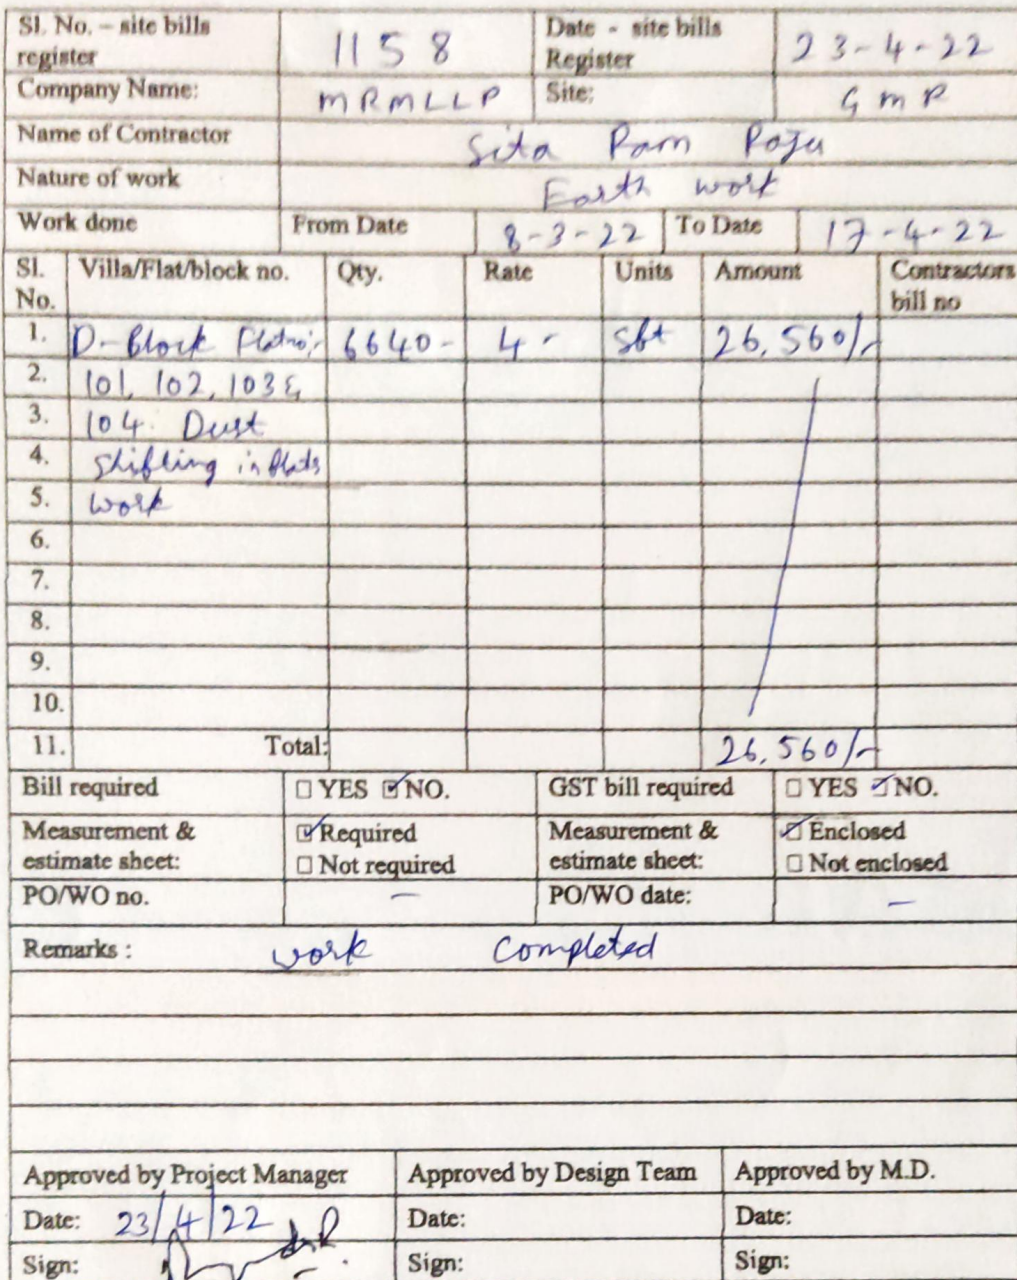 Sl. No. – site bills register 1158 Date - site bills Register 23-4-22
Company Name: MRMLLP Site: GMR
Name of Contractor Sita Ram Raju
Nature of work Earth work
Work done From Date 8-3-22 To Date 17-4-22
Sl. No. Villa/Flat/block no. Qty. Rate Units Amount Contractors bill no
1. D-Block Flatno;- 6640- 4- Sft 26,560/-
2. 101, 102, 103 &
3. 104. Dust
4. Shifting in flats
5. work
6.
7.
8.
9.
10.
11. Total: 26,560/-
Bill required ☐ YES ☑ NO. GST bill required ☐ YES ☑ NO.
Measurement & estimate sheet: ☑ Required ☐ Not required Measurement & estimate sheet: ☑ Enclosed ☐ Not enclosed
PO/WO no. – PO/WO date: –
Remarks : work completed
Approved by Project Manager Approved by Design Team Approved by M.D.
Date: 23/4/22 Date: Date:
Sign: Sign: Sign: